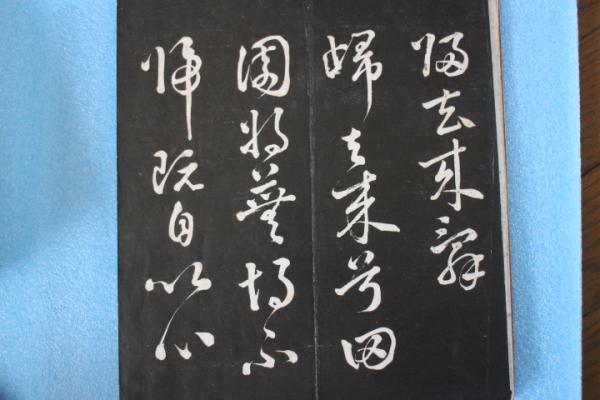 歸去來辭
歸去來兮田
園將蕪胡不
歸既自以心